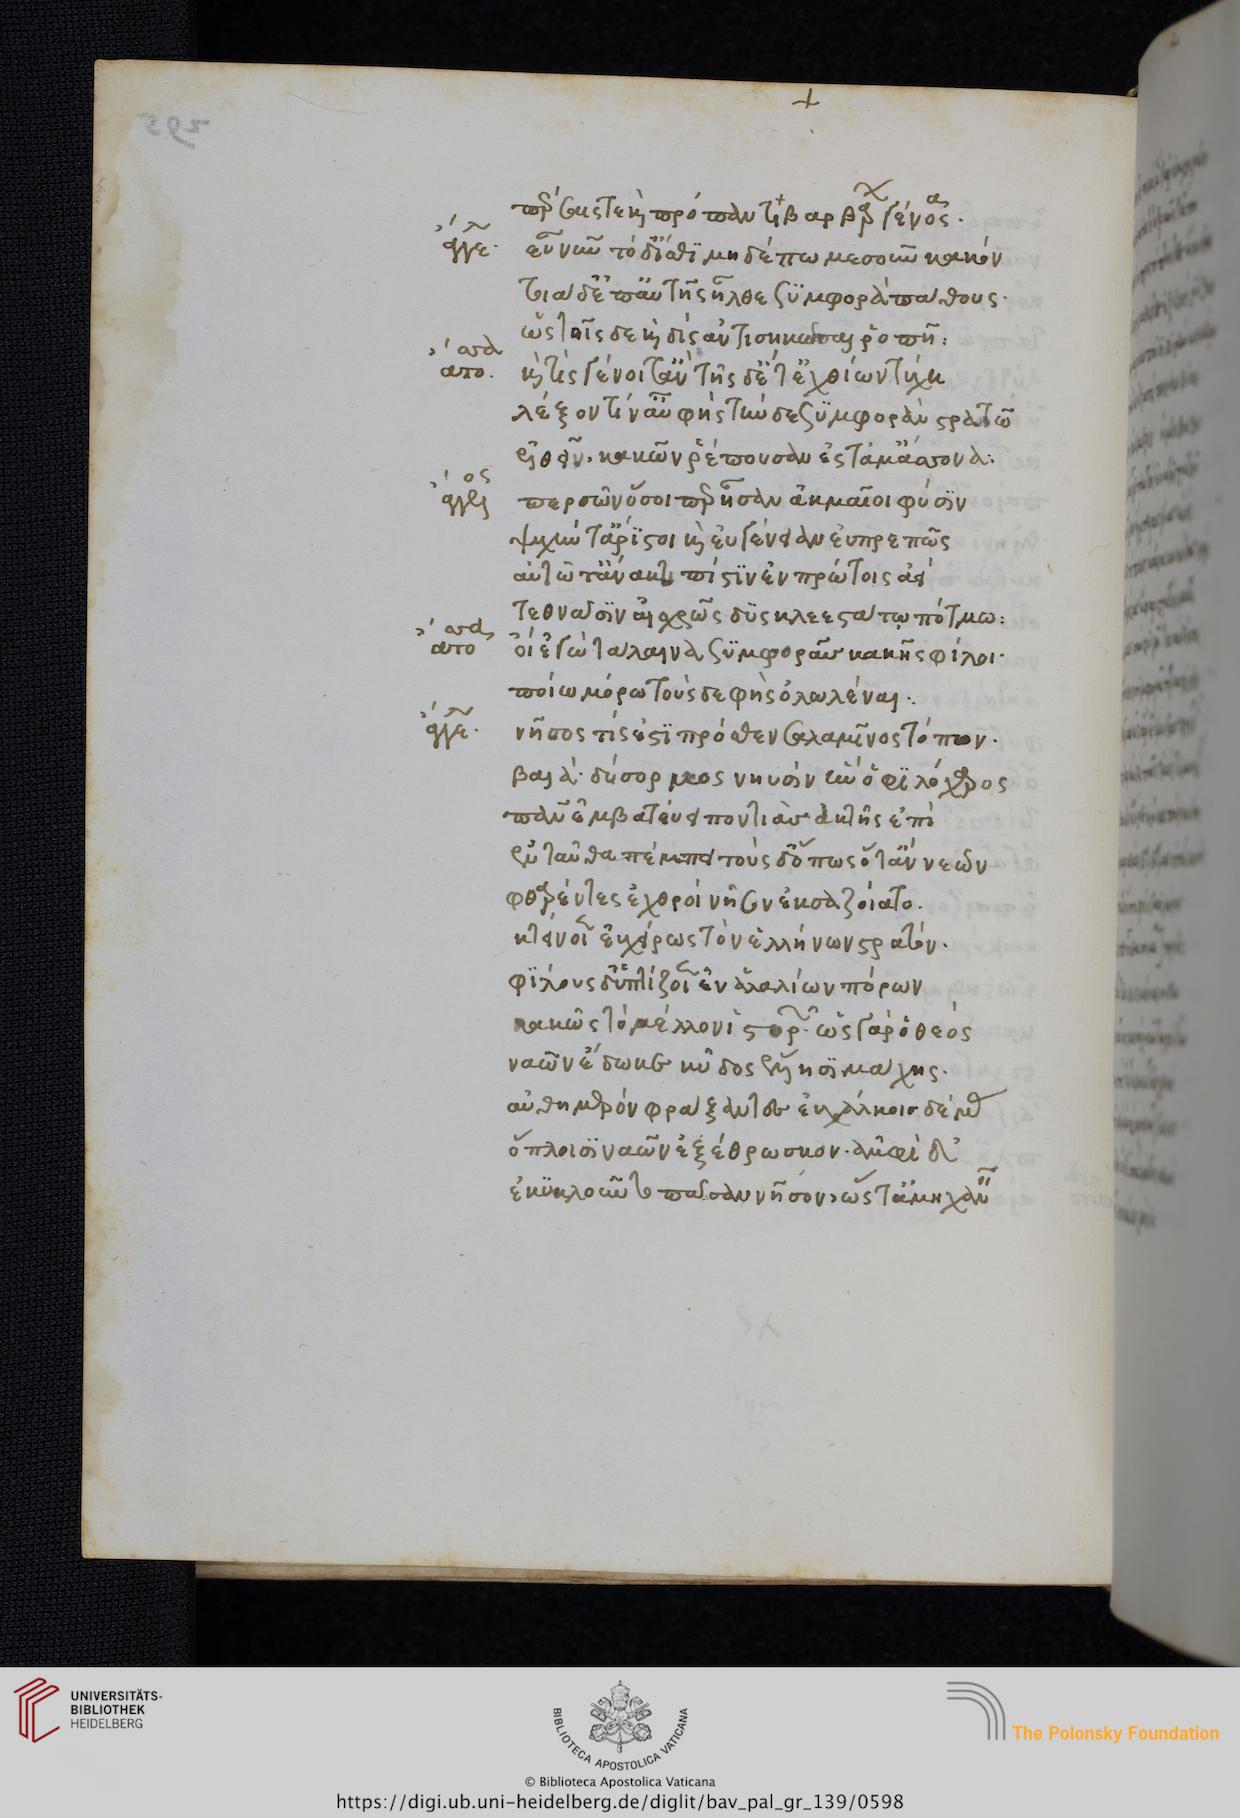 295
περσαις τε και πρόπαντα βαρβάρων γένος.
ἄγγε. εὖ νῦν τόδ' ἴσθι μηδέπω μεσοῦν κακόν
τοιάδ' ἐπ' αὐτοῖς ἦλθε συμφορὰ πάθους.
ὡς τοῖς δε και δὶς ἀντισηκῶσαι ῥοπῆ:
ἄτοσσα
ἀπο. και τίς γένοιτ' ἂν τῆς δέ τ' ἐχθίων τύχη
λέξον τίν' αὖ φὴς τήνδε συμφορὰν στρατῶ
ἐλθεῖν, κακῶν ῥέπουσαν ἐς τὰ μάσσονα.
ἄγγελος περσῶν ὅσοι περ ἦσαν ἀκμαῖοι φύσιν
ψυχήν τ' ἄριστοι και εὐγένειαν εὐπρεπεῖς
αὐτῶ τ' ἄνακτι πίστιν ἐν πρώτοις ἀεί
τεθνᾶσιν αἰσχρῶς δυσκλεεστάτω πότμω:
ἄτοσσα
ἀπο οἲ ἐγὼ τάλαινα συμφορᾶς κακῆς φίλοι.
ποίω μόρω τούσδε φὴς ὀλωλέναι.
ἄγγε. νῆσος τίς ἐστι πρόσθεν σαλαμῖνος τόπων.
βαιά. δύσορμος νηυσὶν ἣν ὁ φιλόχορος
πὰν ἐμβατεύει ποντιᾶς ἀκτῆς ἐπὶ
ἐνταῦθα πέμπει τούς δ' ὅπως ὅτ' ἂν νεῶν
φθαρέντες ἐχθροὶ νῆσον ἐκσαζοίατο.
κτείνοιεν εὐχείρως τὸν ἑλλήνων στρατόν.
φίλους δ' ὑπεκσώζοιεν ἐν ἁλαλίων πόρων
κακῶς τὸ μέλλον ἱστορῶν. ὡς γὰρ ὁ θεὸς
ναῶν ἔδωκε κῦδος ἕλλησι μάχης.
αὐθημερόν φράξαντες εὐχάλκοις δέμας
ὅπλοισι ναῶν ἐξέθρωσκον. ἀμφὶ δὲ
ἐκυκλοῦντο πᾶσαν νῆσον, ὥστ' ἀμηχανεῖν
UNIVERSITÄTS-
BIBLIOTHEK
HEIDELBERG
BIBLIOTECA APOSTOLICA VATICANA
The Polonsky Foundation
© Biblioteca Apostolica Vaticana
https://digi.ub.uni-heidelberg.de/diglit/bav_pal_gr_139/0598